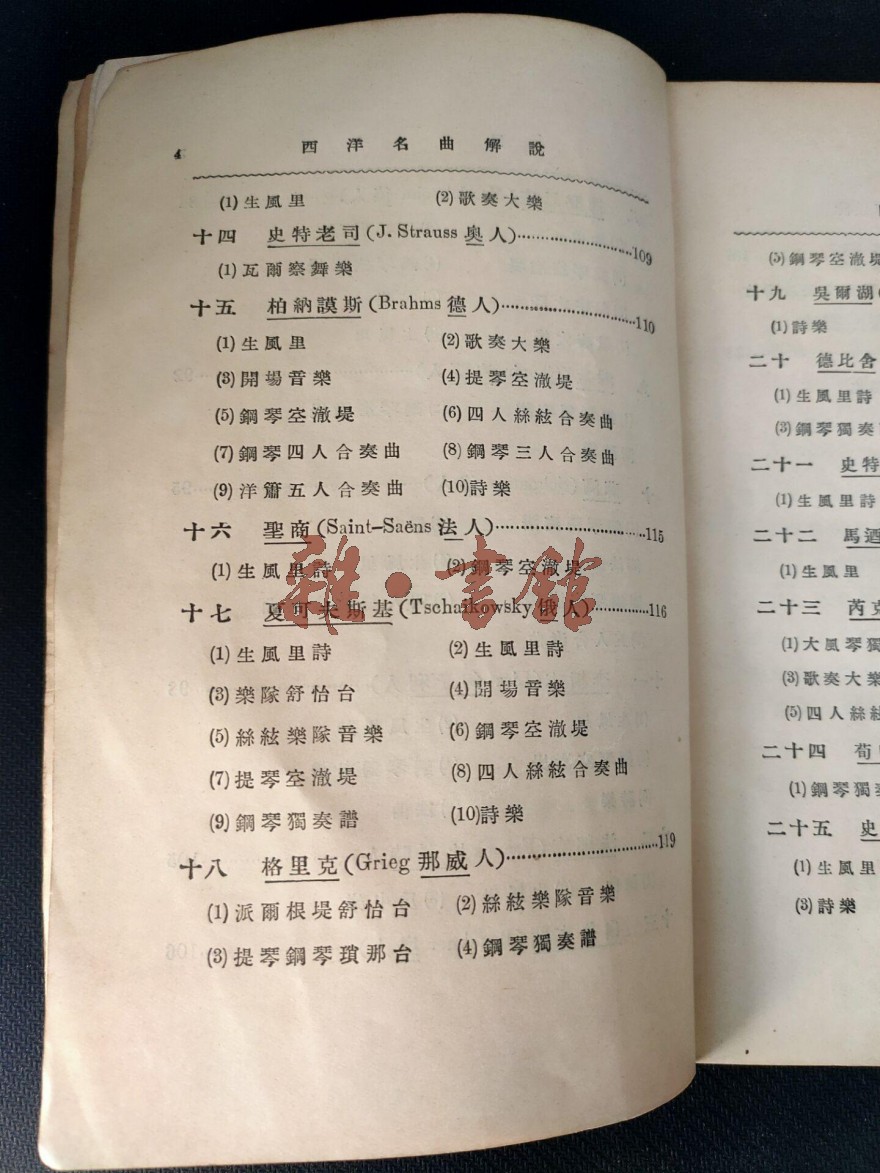 4 西洋名曲解說
(1)生風里 (2)歌奏大樂
十四 史特老司(J. Strauss 奧人)··················109
(1)瓦爾察舞樂
十五 柏納謨斯(Brahms 德人)··················110
(1)生風里 (2)歌奏大樂
(3)開場音樂 (4)提琴空澈堤
(5)鋼琴空澈堤 (6)四人絲絃合奏曲
(7)鋼琴四人合奏曲 (8)鋼琴三人合奏曲
(9)洋簫五人合奏曲 (10)詩樂
十六 聖商(Saint-Saëns 法人)··················115
(1)生風里詩 (2)鋼琴空澈堤
十七 夏可夫斯基(Tschaikowsky 俄人)··················116
(1)生風里詩 (2)生風里詩
(3)樂隊舒怡台 (4)開場音樂
(5)絲絃樂隊音樂 (6)鋼琴空澈堤
(7)提琴空澈堤 (8)四人絲絃合奏曲
(9)鋼琴獨奏譜 (10)詩樂
十八 格里克(Grieg 那威人)··················119
(1)派爾根堤舒怡台 (2)絲絃樂隊音樂
(3)提琴鋼琴瑣那台 (4)鋼琴獨奏譜
雜·書館
(5)鋼琴空澈堤
十九 吳爾湖(
(1)詩樂
二十 德比舍
(1)生風里詩
(3)鋼琴獨奏
二十一 史特
(1)生風里詩
二十二 馬
(1)生風里
二十三 芮克
(1)大風琴獨
(3)歌奏大樂
(5)四人絲
二十四 荀
(1)鋼琴獨
二十五 史
(1)生風里
(3)詩樂